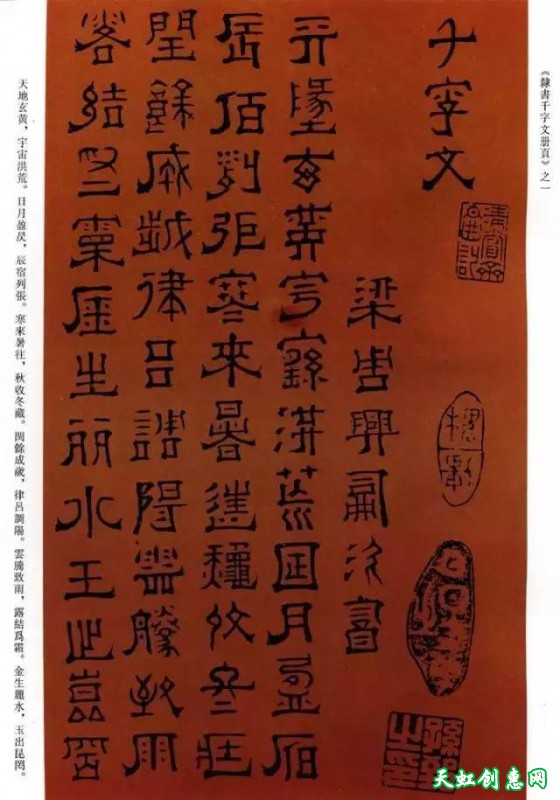 《隸書千字文册頁》之一
千字文
梁周興嗣次書
天墬玄黃宇宙洪荒日月盈昃
辰宿列張寒來暑往龝收冬藏
閏餘成歲律呂調陽雲騰致雨
露結爲霜金生麗水玉出崑岡
天地玄黄，宇宙洪荒。日月盈昃，辰宿列張。寒來暑往，秋收冬藏。閏餘成歲，律呂調陽。雲騰致雨，露結爲霜。金生麗水，玉出昆罔。
天虹创惠网